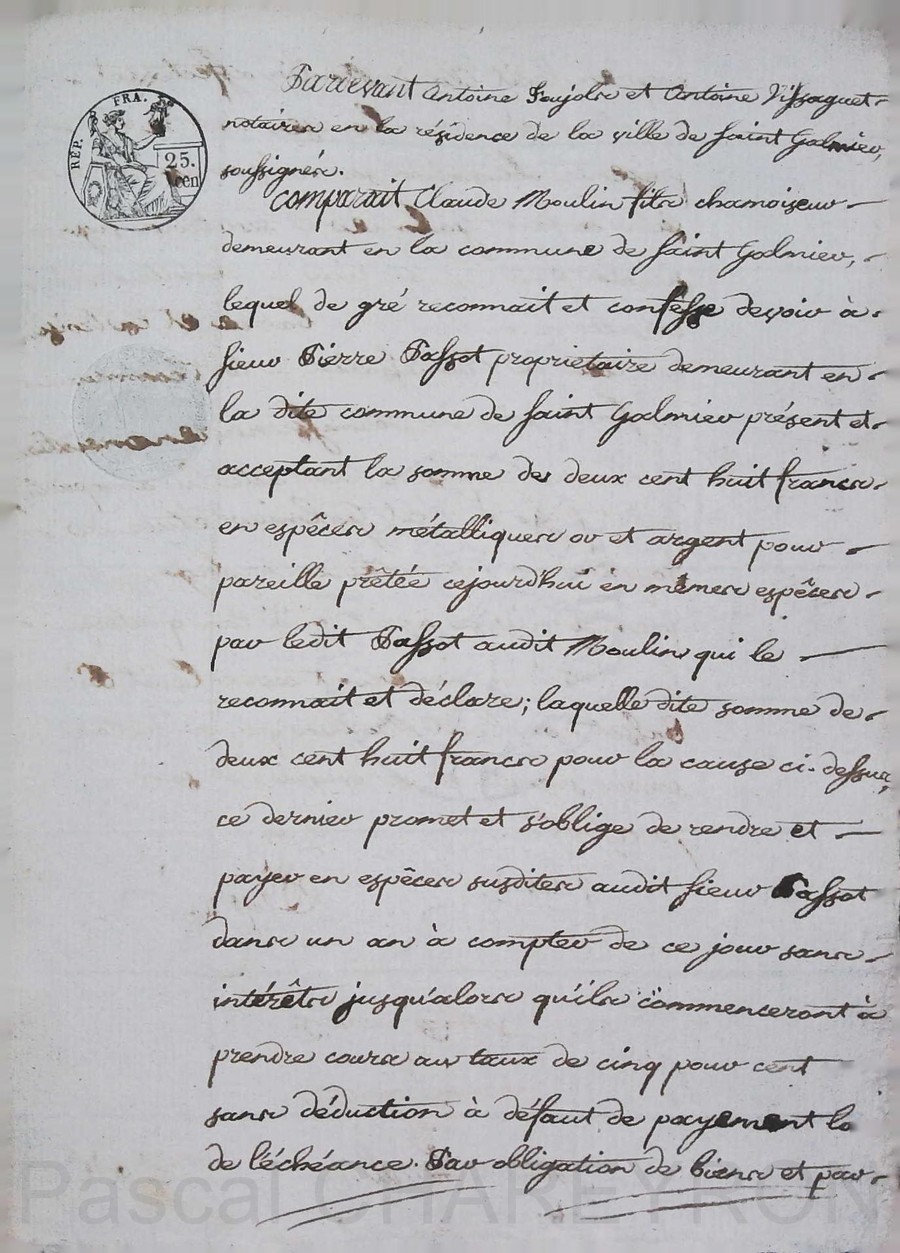 RÉP. FRA.
25.
cen
Pardevant Antoine et Antoine Vissaguet
notaires en la résidence de la ville de Saint Galmier,
soussignés.
Comparait Claude Moulin fils chamoiseur
demeurant en la commune de Saint Galmier,
lequel de gré reconnait et confesse devoir à
sieur Pierre Passot propriétaire demeurant en
la dite commune de Saint Galmier présent et
acceptant la somme de deux cent huit francs
en espêces métalliques or et argent pour
pareille prêtée cejourd'hui en mêmes espêces
par ledit Passot audit Moulin qui le
reconnait et déclare; laquelle dite somme de
deux cent huit francs pour la cause ci-dessus,
ce dernier promet et s'oblige de rendre et
payer en espêces susdites audit sieur Passot
dans un an à compter de ce jour sans
intérêts jusqu'alors qu'ils commenceront à
prendre cours au taux de cinq pour cent
sans déduction à défaut de payement lo
de l'échéance. Par obligation de biens et par
Pascal CHAREYRON